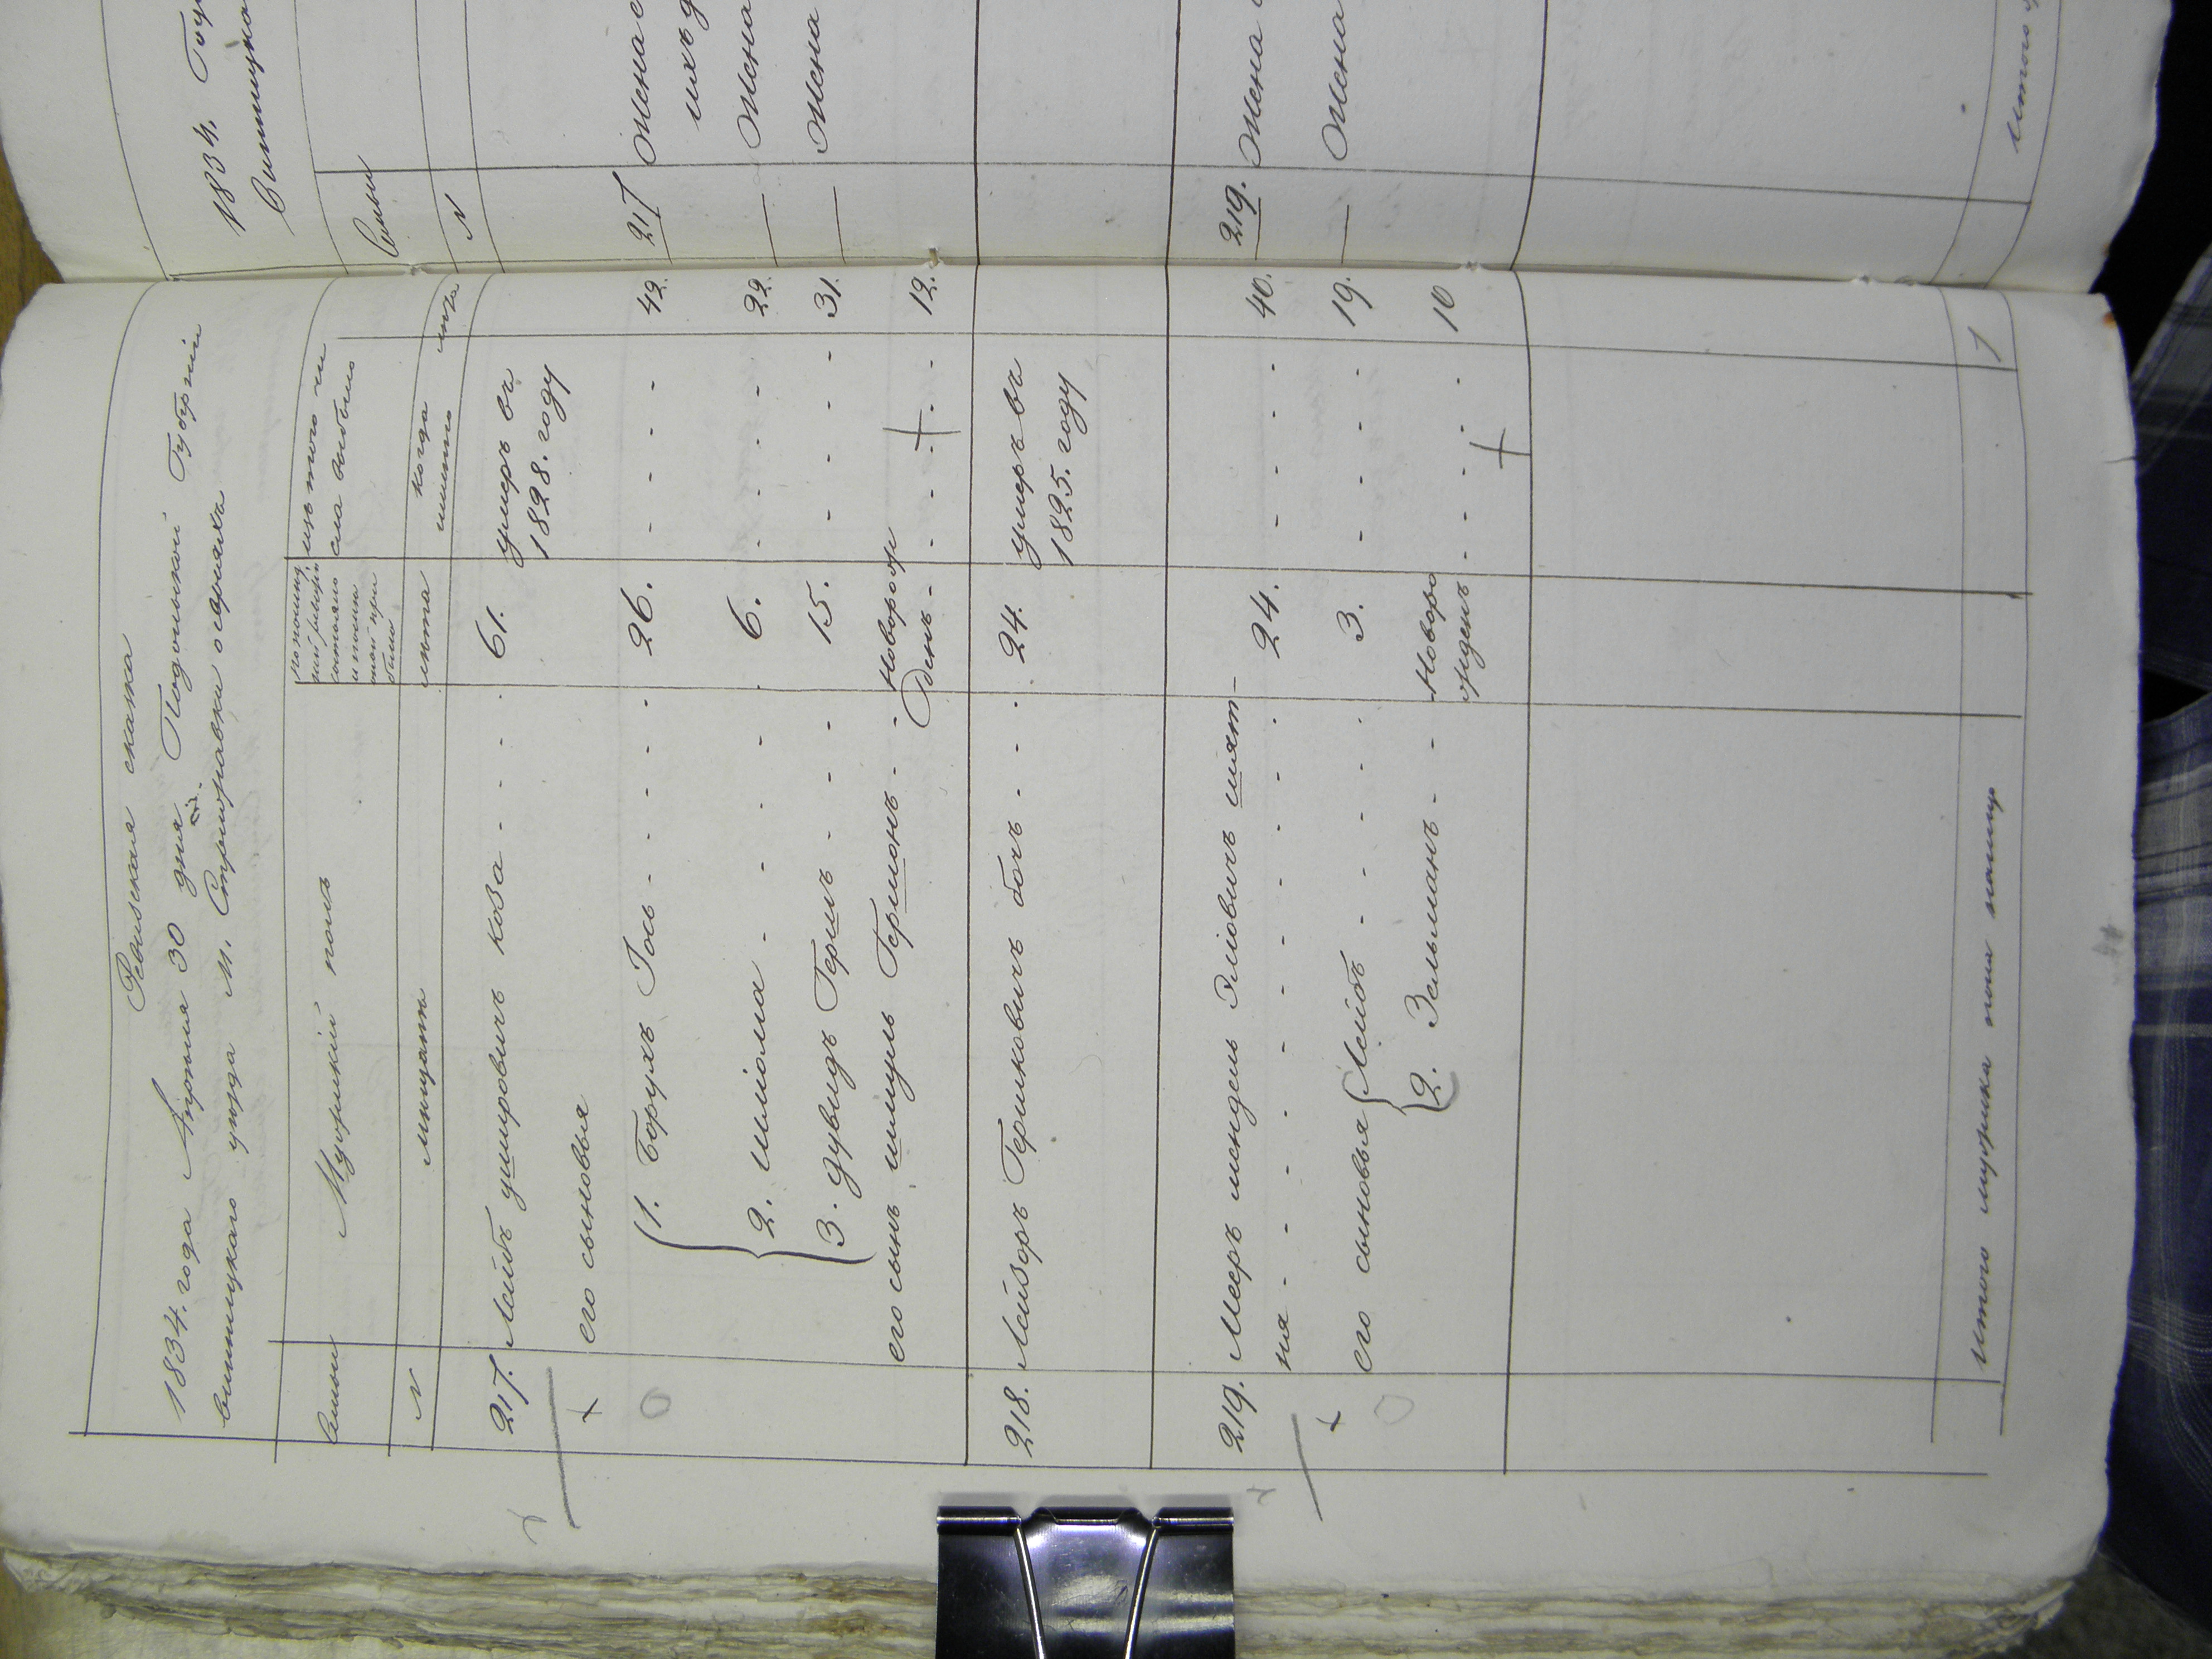 Ревизская сказка
1834. года Апреля 30 дня Подольской Губернии
Винницкаго уезда М. Стрижавки о евреяхъ
Семьи
Мужескій полъ
По последней ревизіи состояло и после оной прибыло
изъ того числа выбыло
N
мещанъ
лета
когда именно
летъ
217. Лейбъ ушировичъ коза - - - - 61. умеръ въ 1828. году
его сыновья
1. Борухъ Іось - - - - - 26. - - - - 42.
2. шліома - - - - 6. - - - - 22.
3. дувидъ Гершъ - - - 15. - - - - 31.
его сынъ шмуль Гершонъ - - - новорож
денъ - - - - - - 12.
218. Лейзоръ Гершковичъ бочъ - - - 24. умеръ въ 1825. году
219. Мееръ мендель Эліовичъ шят-
ня - - - - - - - - - - - 24. - - - - 40.
его сыновья Лейбъ - - - - - 3. - - - - 19.
2. Зельманъ - - - Новоро
жденъ - - - - 10
Итого мужеска пола налицо 1
1834. Году
Винницка
Семьи
N
217 Жена е
ихъ д
— Жена
— Жена
219. Жена е
— Жена
Итого